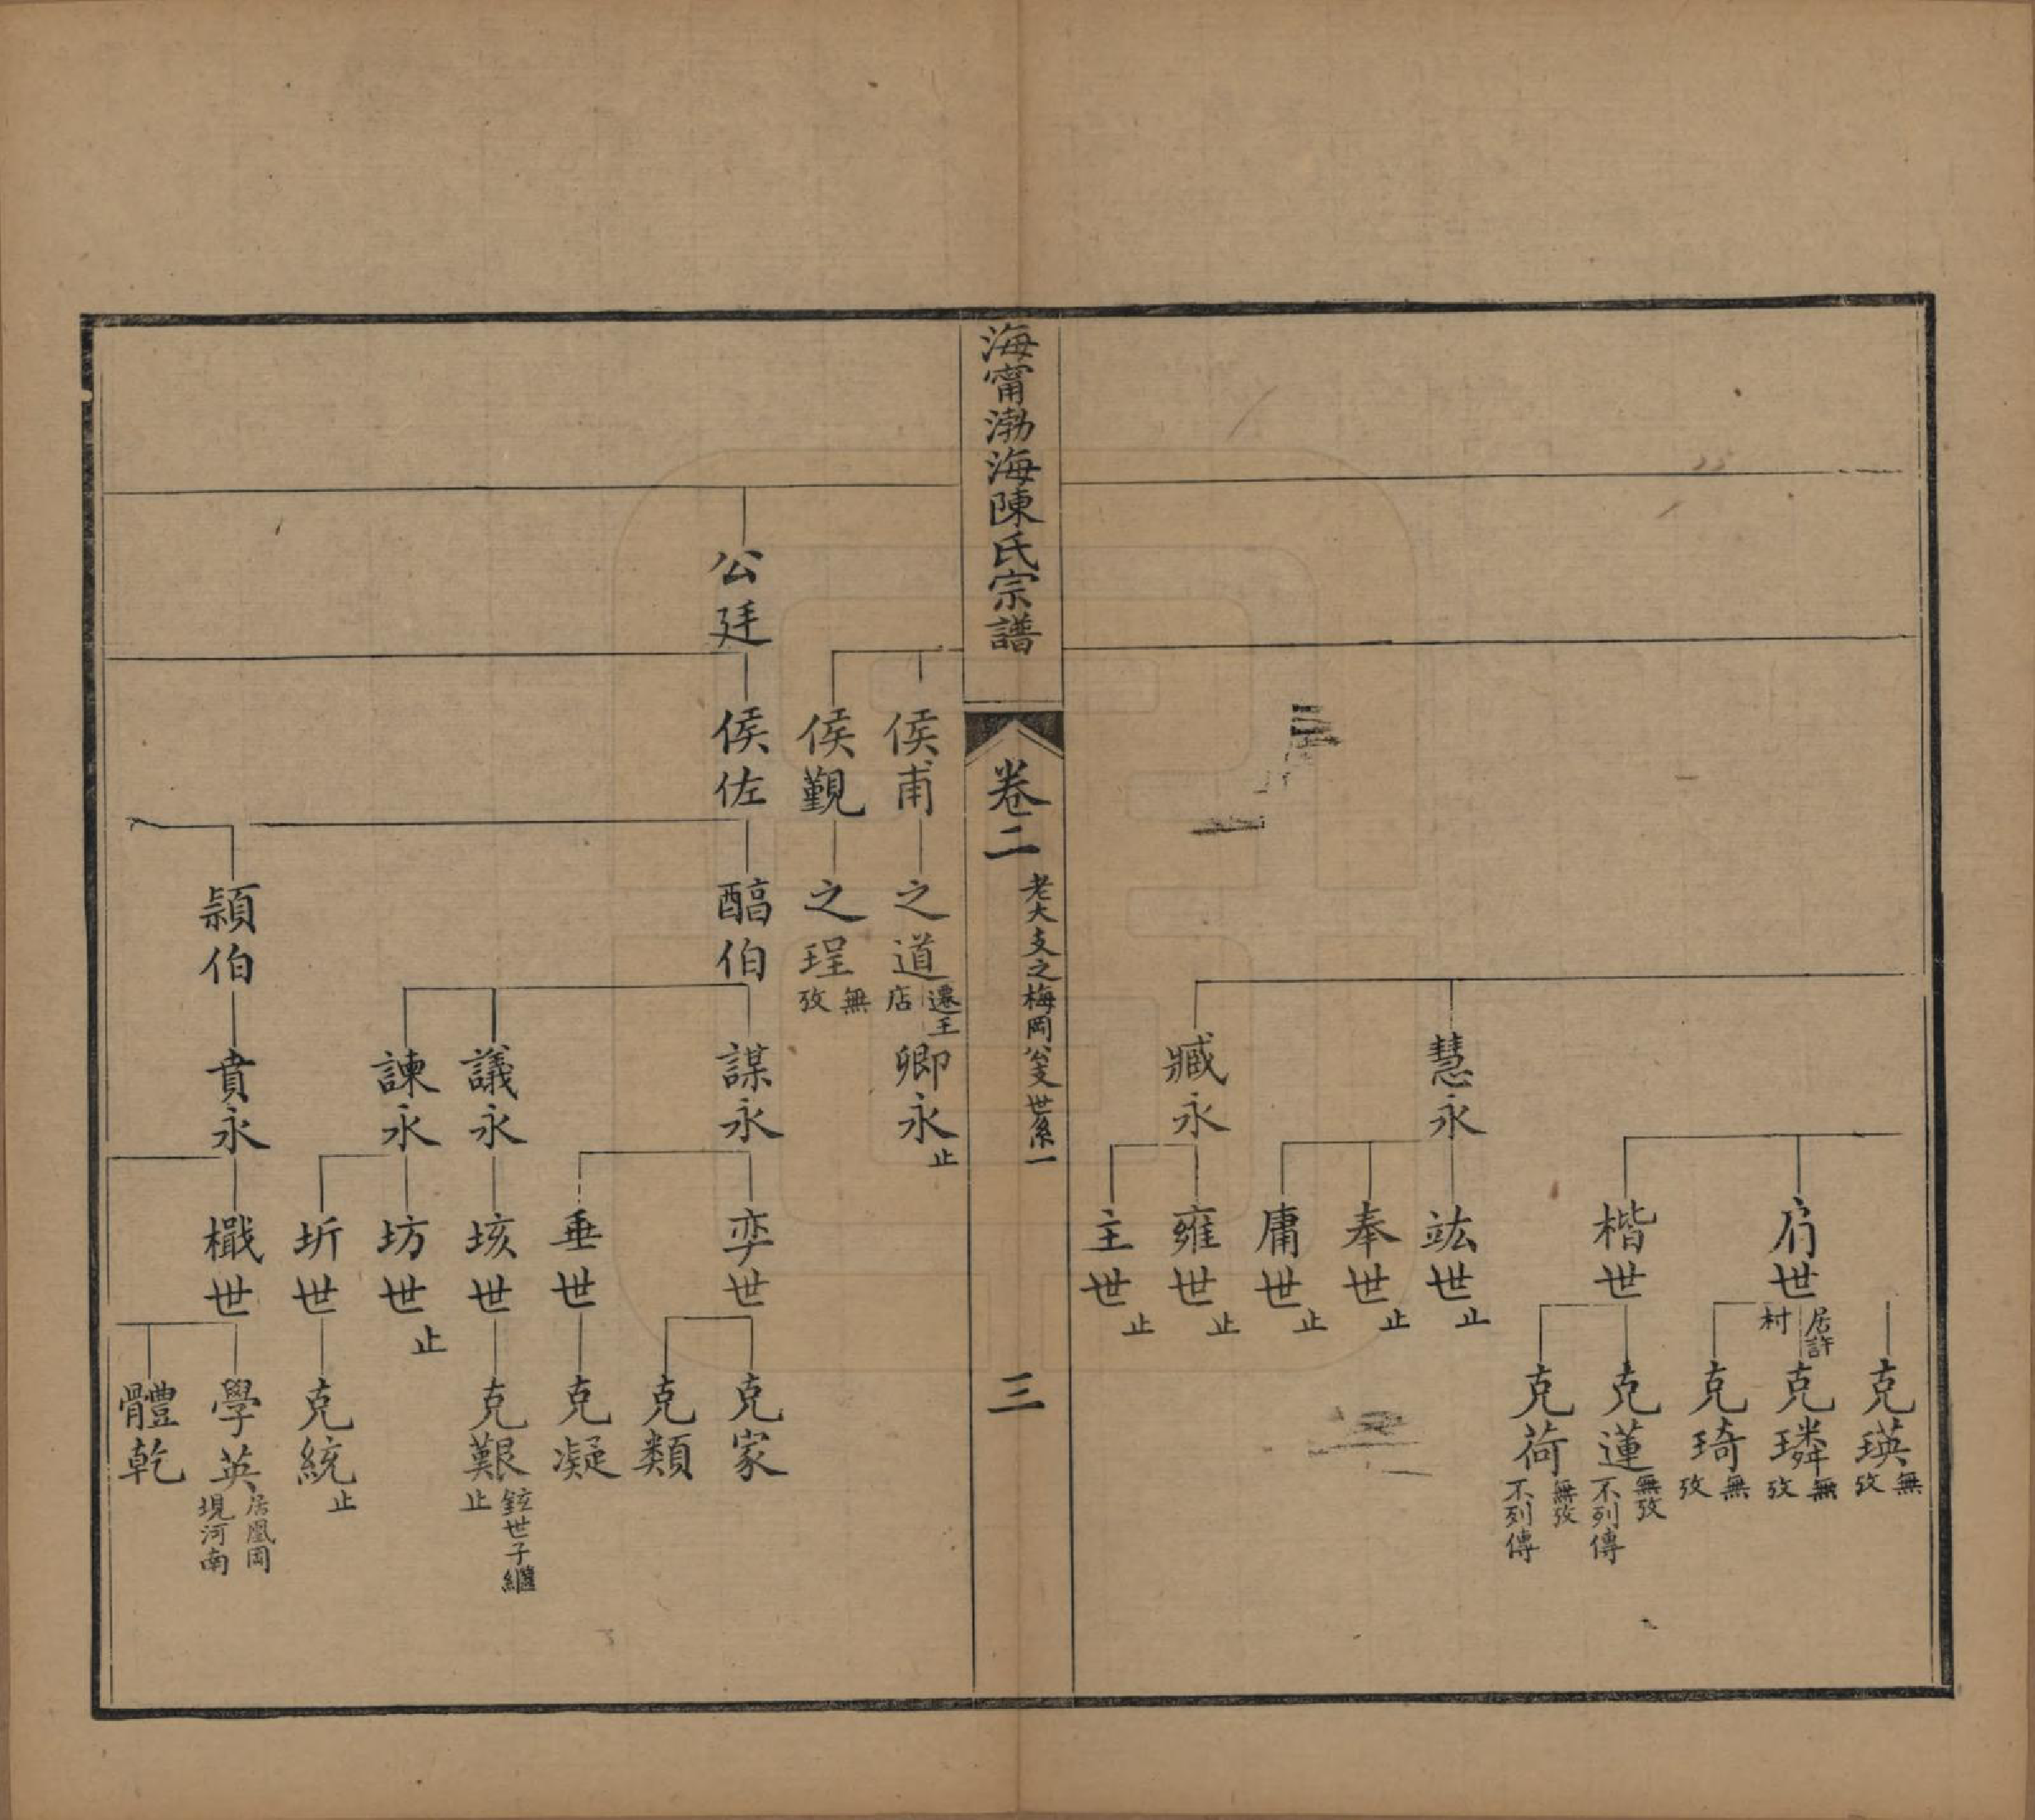 克瑛 無攷
肩世 居許村
克璘 無攷
克琦 無攷
楷世
克蓮 無攷不列傳
克荷 無攷不列傳
慧永
竑世 止
奉世 止
庸世 止
臧永
雍世 止
主世 止
海甯渤海陳氏宗譜
卷二
老大支之梅岡公支世系一
三
侯甫
之道 遷王店
卿永 止
侯觀
之珵 無攷
公廷
侯佐
醕伯
謀永
弈世
克家
克類
垂世
克凝
議永
垓世
克艱 鋐世子繼止
諫永
坊世 止
圻世
克統 止
穎伯
賁永
檝世
學英 居鳳岡堽河南
體乾